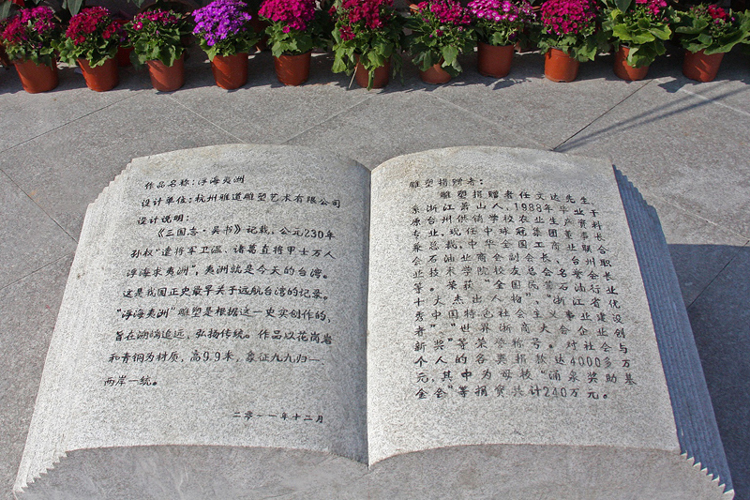 作品名称：浮海夷洲
设计单位：杭州雅道雕塑艺术有限公司
设计说明：
《三国志·吴书》记载，公元230年
孙权“遣将军卫温、诸葛直将甲士万人
浮海求夷洲”，夷洲就是今天的台湾。
这是我国正史最早关于远航台湾的记录。
“浮海夷洲”雕塑是根据这一史实创作的，
旨在溯端追远，弘扬传统。作品以花岗岩
和青铜为材质，高9.9米，象征九九归一
两岸一统。
二零一一年十二月
雕塑捐赠者：
雕塑捐赠者任文达先生，
系浙江萧山人，1988年毕业于
原台州供销学校农业生产资料
专业。现任中球冠集团董事长
兼总裁、中华全国工商业联合
会石油业商会副会长、台州职
业技术学院校友总会名誉会长
等。荣获“全国民营石油行业
十大杰出人物”、“浙江省优
秀中国特色社会主义事业建设
者”、“世界浙商大会企业创
新奖”等荣誉称号。对社会与
个人的各类捐款达4000多万
元，其中为母校“涌泉奖助基
金会”等捐资共计240万元。